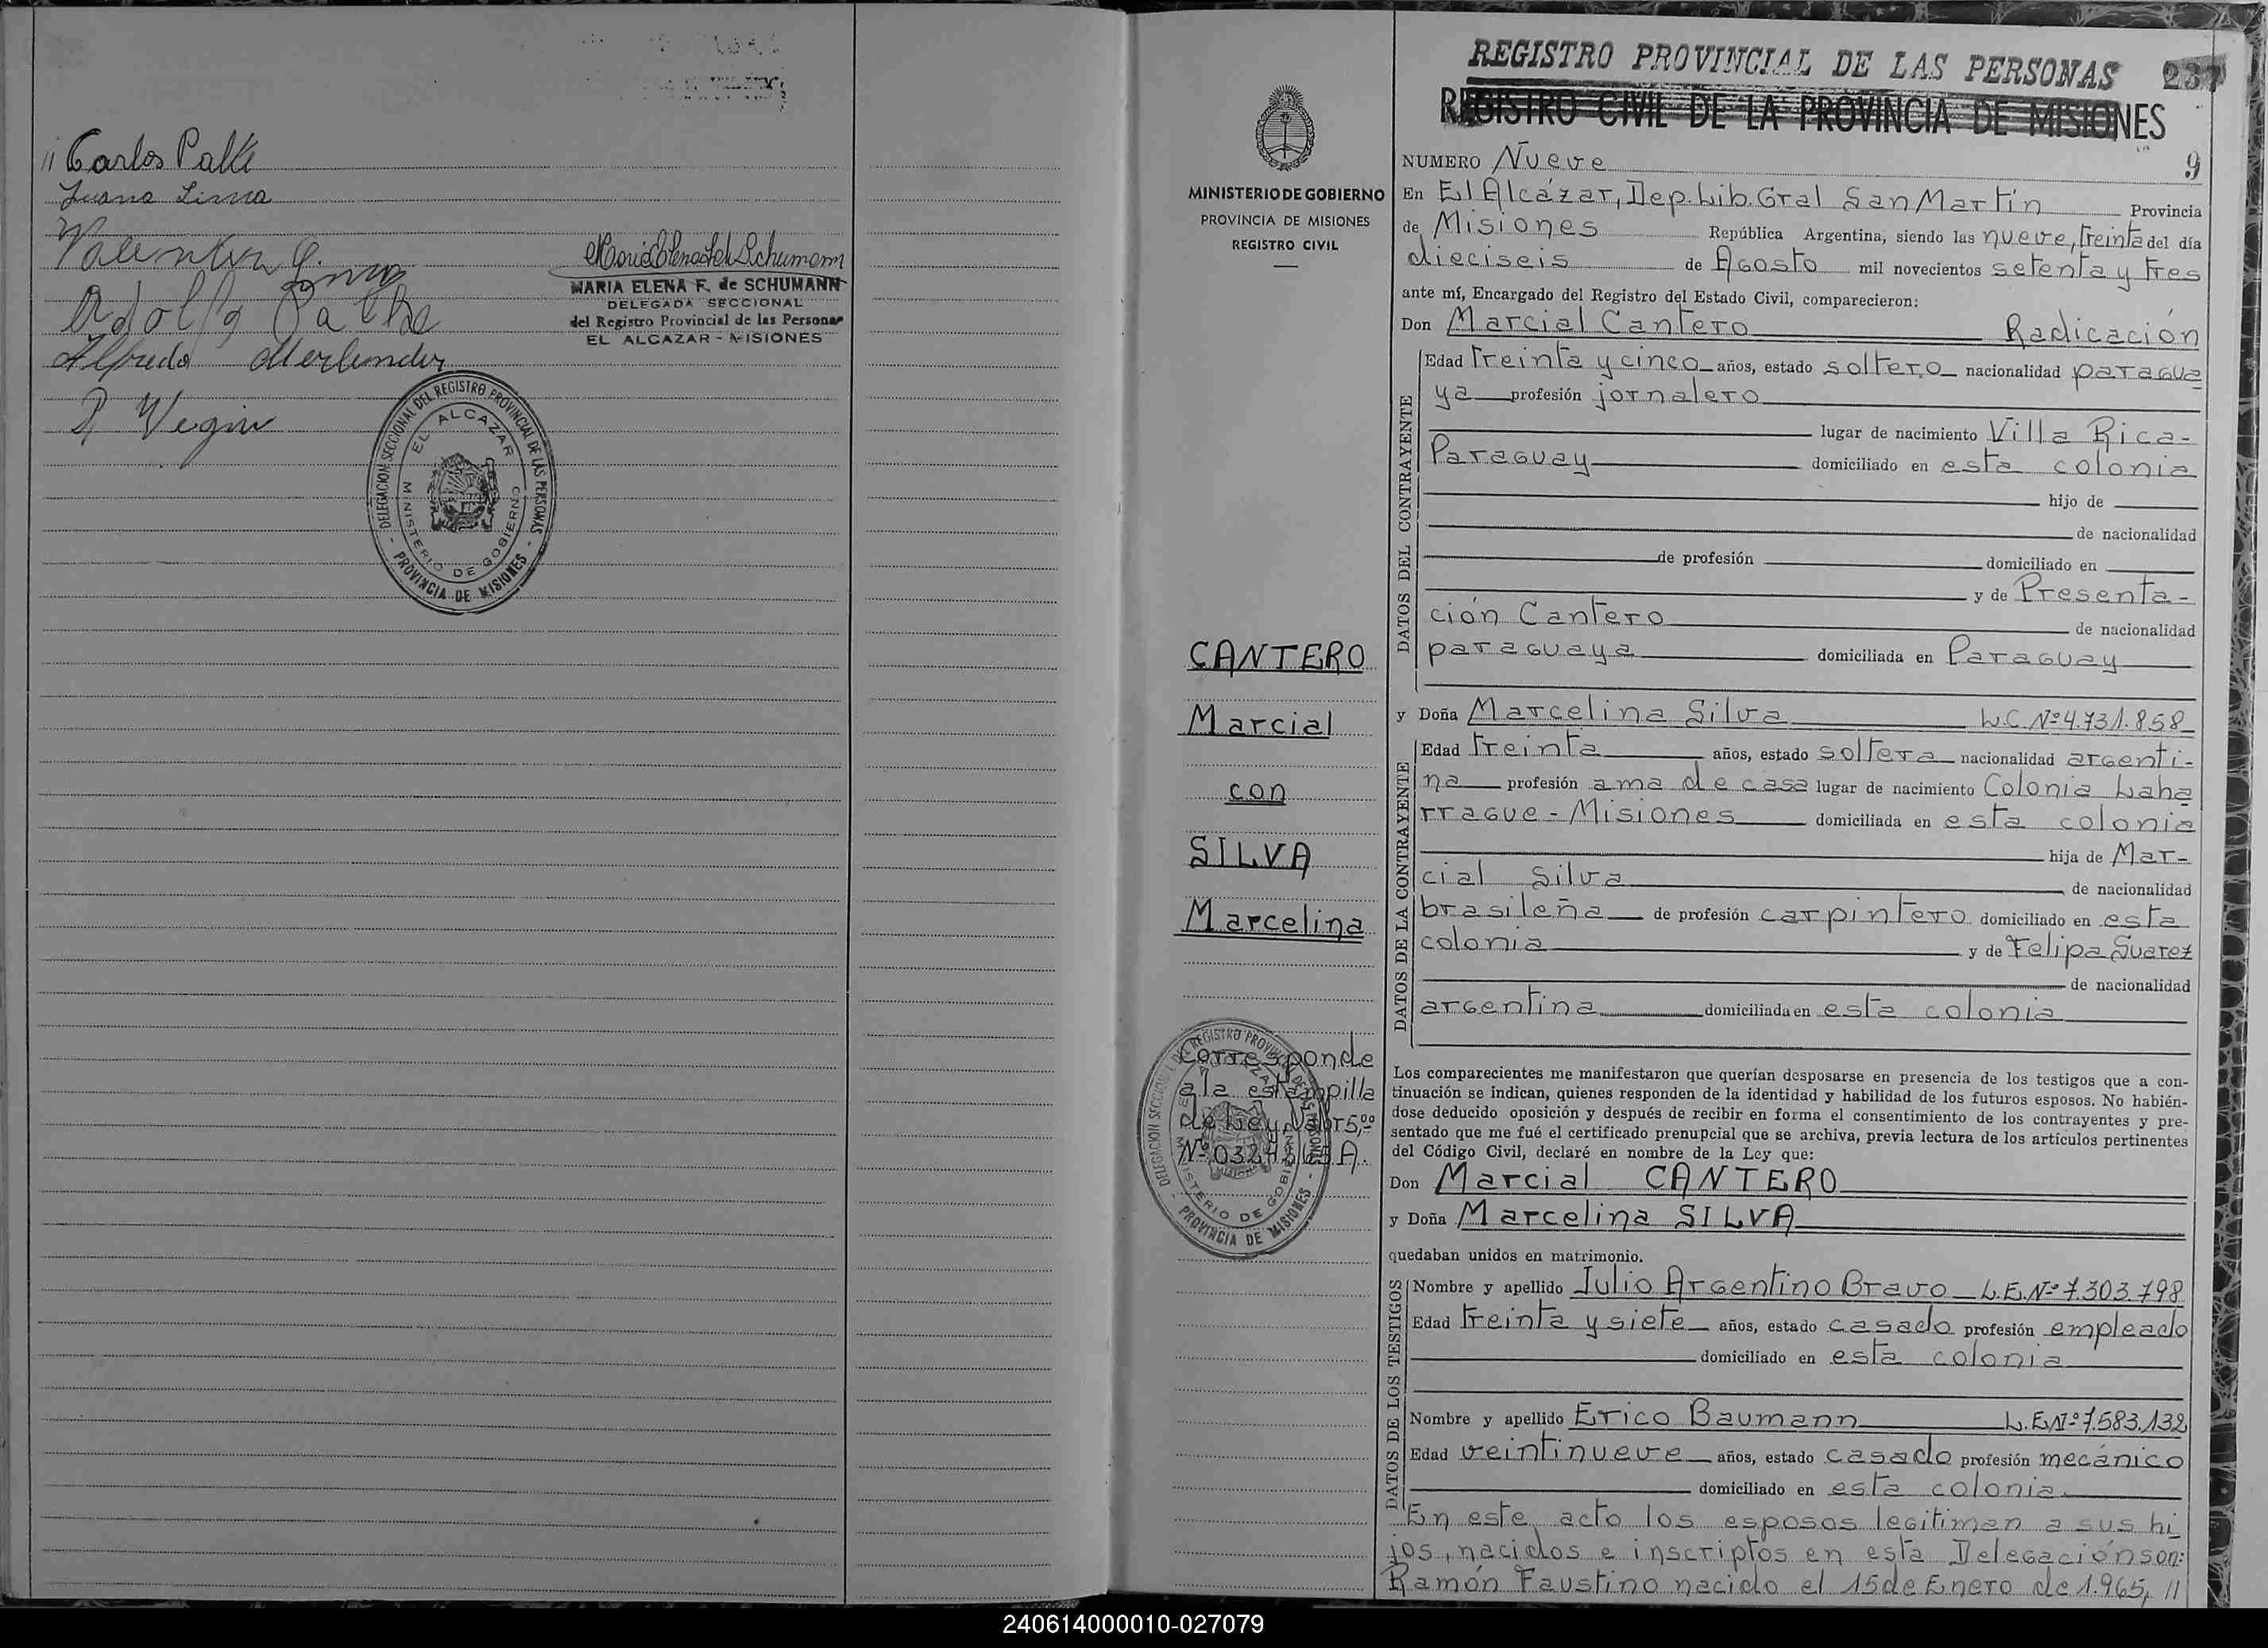 " Carlos Palke
Juana Lima
Valentin
Adolfo Palke
Alfredo
MARIA ELENA F. de SCHUMANN
DELEGADA SECCIONAL
del Registro Provincial de las Personas
EL ALCAZAR - MISIONES
DELEGACION SECCIONAL DEL REGISTRO PROVINCIAL DE LAS PERSONAS
EL ALCAZAR
MINISTERIO DE GOBIERNO
- PROVINCIA DE MISIONES -
MINISTERIO DE GOBIERNO
PROVINCIA DE MISIONES
REGISTRO CIVIL
CANTERO
Marcial
con
SILVA
Marcelina
Corresponde
a la estampilla
de Ley Valor 5,00
REGISTRO PROVINCIAL DE LAS PERSONAS 237
REGISTRO CIVIL DE LA PROVINCIA DE MISIONES
NUMERO Nueve 9
En El Alcázar, Dep. Lib. Gral San Martín Provincia
de Misiones República Argentina, siendo las nueve, treinta del día
dieciseis de Agosto mil novecientos setenta y tres
ante mí, Encargado del Registro del Estado Civil, comparecieron:
Don Marcial Cantero Radicación
DATOS DEL CONTRAYENTE
Edad treinta y cinco años, estado soltero nacionalidad paragua
ya profesión jornalero
lugar de nacimiento Villa Rica-
Paraguay domiciliado en esta colonia
hijo de
de nacionalidad
de profesión domiciliado en
y de Presenta-
ción Cantero de nacionalidad
paraguaya domiciliada en Paraguay
y Doña Marcelina Silva L.C. Nº 4.731.858
DATOS DE LA CONTRAYENTE
Edad treinta años, estado soltera nacionalidad argenti-
na profesión ama de casa lugar de nacimiento Colonia Laha
rrague - Misiones domiciliada en esta colonia
hija de Mar-
cial Silva de nacionalidad
brasileña de profesión carpintero domiciliado en esta
colonia y de Felipa Suarez
de nacionalidad
argentina domiciliada en esta colonia
Los comparecientes me manifestaron que querían desposarse en presencia de los testigos que a con-
tinuación se indican, quienes responden de la identidad y habilidad de los futuros esposos. No habién-
dose deducido oposición y después de recibir en forma el consentimiento de los contrayentes y pre-
sentado que me fué el certificado prenupcial que se archiva, previa lectura de los artículos pertinentes
del Código Civil, declaré en nombre de la Ley que:
Don Marcial CANTERO
y Doña Marcelina SILVA
quedaban unidos en matrimonio.
DATOS DE LOS TESTIGOS
Nombre y apellido Julio Argentino Bravo L.E. Nº 7.303.798
Edad treinta y siete años, estado casado profesión empleado
domiciliado en esta colonia
Nombre y apellido Erico Baumann L.E. Nº 7.583.132
Edad veintinueve años, estado casado profesión mecánico
domiciliado en esta colonia.
En este acto los esposos legitiman a sus hi
jos, nacidos e inscriptos en esta Delegación son:
Ramón Faustino nacido el 15 de Enero de 1.965, //
240614000010-027079